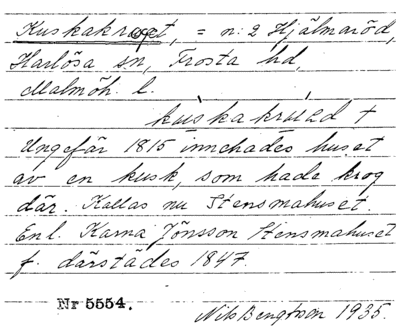 Kuskakroget, = n: 2 Hjälmaröd,
Harlösa sn, Frosta hd,
Malmöh. l.
kuskakruad +
Ungefär 1815 innehades huset
av en kusk, som hade krog
där. Kallas nu Stensmahuset.
Enl. Karna Jönsson Stensmahuset
f. därstädes 1847.
Nr 5554.
Nils Bengtsson 1935.